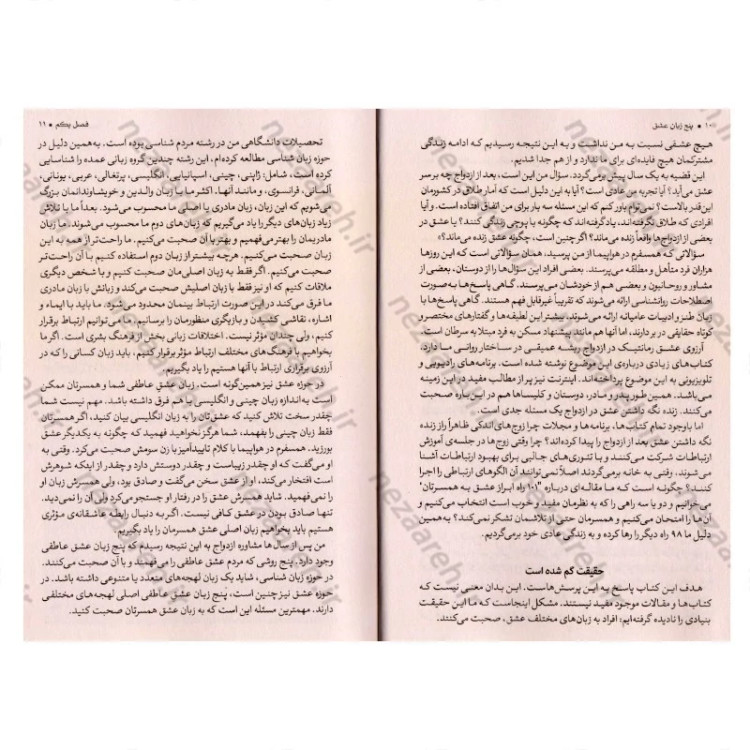 ۱۰ • پنج زبان عشق
هیچ عشقی نسبت به من نداشت و به این نتیجه رسیدیم که ادامه زندگی
مشترکمان هیچ فایده‌ای برای ما ندارد و از هم جدا شدیم.
این قضیه به یک سال پیش برمی‌گردد. سؤال من این است، بعد از ازدواج چه بر سر
عشق می‌آید؟ آیا تجربه من عادی است؟ آیا به این دلیل است که آمار طلاق در کشورمان
این قدر بالاست؟ نمی‌توانم باور کنم که این مسئله سه بار برای من اتفاق افتاده است. و آیا
افرادی که طلاق نگرفته‌اند، یاد گرفته‌اند که چگونه با پوچی زندگی کنند؟ یا عشق در
بعضی از ازدواج‌ها واقعاً زنده می‌ماند؟ اگر چنین است، چگونه عشق زنده می‌ماند؟»
سؤالاتی که همسفرم در هواپیما از من پرسید، همان سؤالاتی است که این روزها
هزاران فرد متأهل و مطلقه می‌پرسند. بعضی افراد این سؤال‌ها را از دوستان، بعضی از
مشاور و روحانیون و بعضی هم از خودشان می‌پرسند. گاهی پاسخ‌ها با
اصطلاحات روانشناسی ارائه می‌شوند که تقریباً غیرقابل فهم هستند. گاهی پاسخ‌ها با
زبان طنز و ادبیات عامیانه ارائه می‌شوند. بیشتر این لطیفه‌ها و گفتارهای مختصر و
کوتاه حقایقی در بر دارند، اما آنها هم مانند پیشنهاد مسکن به فرد مبتلا به سرطان است.
آرزوی عشق رمانتیک در ازدواج ریشه عمیقی در ساختار روانی ما دارد.
کتاب‌های زیادی درباره‌ی این موضوع نوشته شده است. برنامه‌های رادیویی و
تلویزیونی به این موضوع پرداخته‌اند. اینترنت نیز پر از مطالب مفید در این زمینه
می‌باشد. همین طور پدر و مادر، دوستان و کلیساها هم در این باره صحبت
می‌کنند. زنده نگه داشتن عشق در ازدواج یک مسئله جدی است.
اما با وجود تمام کتاب‌ها، برنامه‌ها و مجلات چرا زوج‌های اندکی ظاهراً راز زنده
نگه داشتن عشق بعد از ازدواج را پیدا کرده‌اند؟ چرا وقتی زوج ها در جلسه‌ی آموزش
ارتباطات شرکت می‌کنند و با تئوری‌های جالبی برای بهبود ارتباطات آشنا
می‌شوند، وقتی به خانه برمی‌گردند اصلاً نمی‌توانند آن الگوهای ارتباطی را اجرا
کنند؟ چگونه است که ما مقاله‌ای درباره "۱۰۱ راه ابراز عشق به همسرتان"
می‌خوانیم و دو یا سه راهی را که به نظرمان مفید و خوب است انتخاب می‌کنیم و
آن ها را امتحان می‌کنیم و همسرمان حتی از تلاشمان تشکر نمی‌کند؟ به همین
دلیل ما ۹۸ راه دیگر را رها کرده و به زندگی عادی خود برمی‌گردیم.
حقیقت گم شده است
هدف این کتاب پاسخ به این پرسش‌هاست. این بدان معنی نیست که
کتاب‌ها و مقالات موجود مفید نیستند. مشکل اینجاست که ما این حقیقت
بنیادی را نادیده گرفته‌ایم: افراد به زبان‌های مختلف عشق، صحبت می‌کنند.
فصل یکم • ۱۱
تحصیلات دانشگاهی من در رشته مردم شناسی بوده است. به همین دلیل در
حوزه زبان شناسی مطالعه کرده‌ام. این رشته چندین گروه زبانی عمده را شناسایی
کرده است، شامل: ژاپنی، چینی، اسپانیایی، انگلیسی، پرتغالی، عربی، یونانی،
آلمانی، فرانسوی، و مانند آنها. اکثر ما با زبان والدین و خویشاوندانمان بزرگ
می‌شویم که این زبان، زبان مادری یا اصلی ما محسوب می‌شود. بعداً ما با تلاش
زیاد زبان‌های دیگر را یاد می‌گیریم که زبان‌های دوم ما محسوب می‌شوند. ما زبان
مادریمان را بهتر می‌فهمیم و بهتر با آن صحبت می‌کنیم. ما راحت‌تر از همه به این
زبان صحبت می‌کنیم. هرچه بیشتر از زبان دوم استفاده کنیم با آن راحت‌تر
صحبت می‌کنیم. اگر فقط به زبان اصلی‌مان صحبت کنیم و با شخص دیگری
ملاقات کنیم که او نیز فقط با زبان اصلیش صحبت می‌کند و زبانش با زبان مادری
ما فرق می‌کند در این صورت ارتباط بینمان محدود می‌شود. ما باید با ایماء و
اشاره، نقاشی کشیدن و بازیگری منظورمان را برسانیم. ما می‌توانیم ارتباط برقرار
کنیم، ولی چندان مؤثر نیست. اختلافات زبانی بخش از فرهنگ بشری است. اگر ما
بخواهیم با فرهنگ‌های مختلف ارتباط مؤثر برقرار کنیم، باید زبان کسانی را که در
آرزوی برقراری ارتباط با آنها هستیم را یاد بگیریم.
در حوزه عشق نیز همین‌گونه است. زبان عشق عاطفی شما و همسرتان ممکن
است به اندازه زبان چینی و انگلیسی با هم فرق داشته باشد. مهم نیست شما
چقدر سخت تلاش کنید که عشق‌تان را به زبان انگلیسی بیان کنید، اگر همسرتان
فقط زبان چینی را بفهمد، شما هرگز نخواهید فهمید که چگونه به یکدیگر عشق
بورزید. همسفرم در هواپیما با کلام تاییدآمیز با زن سومش صحبت می‌کرد. وقتی به
او می‌گفت که او چقدر زیباست و چقدر دوستش دارد و چقدر از اینکه شوهرش
است افتخار می‌کند، او از عشق سخن می‌گفت و صادق بود، ولی همسرش زبان او
را نمی‌فهمید. شاید همسرش عشق را در رفتار او جستجو می‌کرد ولی آن را نمی‌دید.
تنها صادق بودن در عشق کافی نیست. اگر به دنبال رابطه عاشقانه‌ی مؤثری
هستیم باید بخواهیم زبان اصلی عشق همسرمان را یاد بگیریم.
من پس از سال ها مشاوره ازدواج به این نتیجه رسیدم که پنج زبان عشق عاطفی
وجود دارد. پنج روشی که مردم عشق عاطفی را می‌فهمند و با آن صحبت می‌کنند.
در حوزه زبان شناسی، شاید یک زبان لهجه‌های متعدد یا متنوعی داشته باشد. در
حوزه عشق نیز چنین است، پنج زبان عشق عاطفی اصلی لهجه‌های مختلفی
دارند. مهمترین مسئله این است که به زبان عشق همسرتان صحبت کنید.
nezaareh.ir